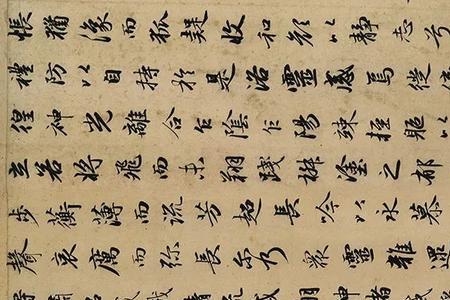 悵猶豫而狐疑收和顏以靜志兮
禮防以自持於是洛靈感焉徙
徨神光離合乍陰乍陽竦輕軀以
立若將飛而未翔踐椒塗之郁
步蘅薄而流芳超長吟以永慕
聲哀厲而弥長尔乃眾靈雜遝